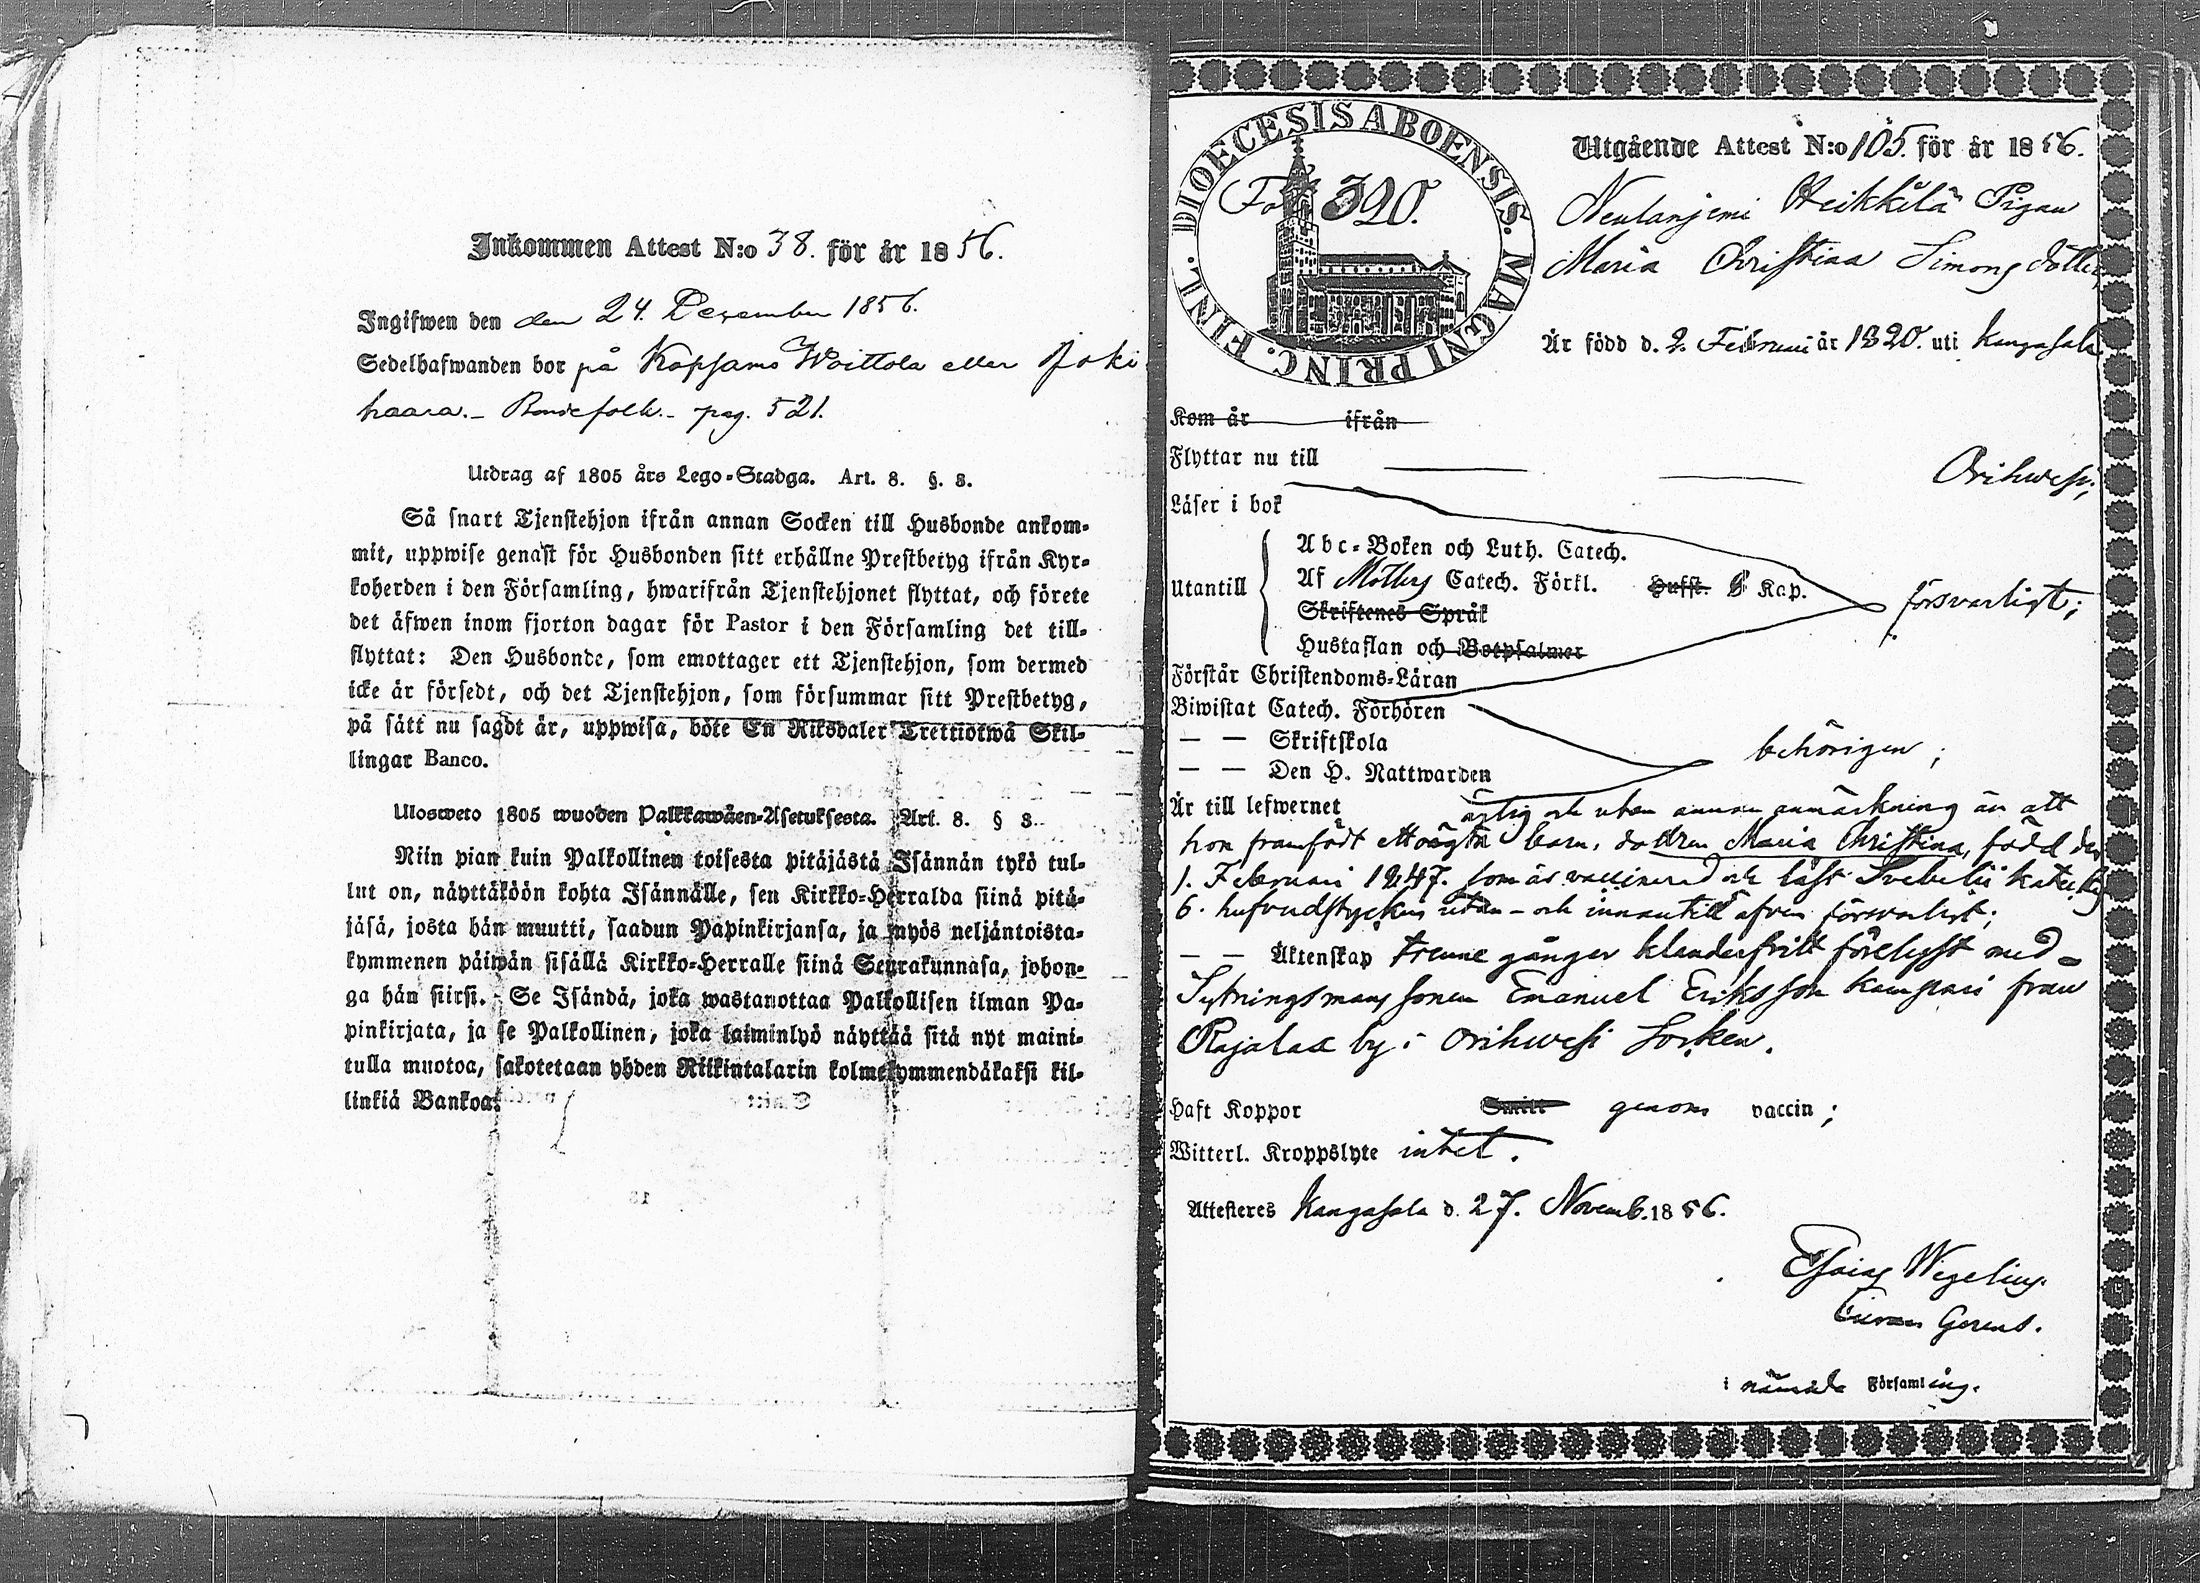 Inkommen Attest N:o 38. för år 1856.
Ingifwen den den 24. December 1856.
Sedelhafwanden bor på Kopsamo Woittola eller Joki
haara. - Bondefolk. - pag. 521.
Utdrag af 1805 års Lego-Stadga. Art. 8. §. 3.
Så snart Tjenstehjon ifrån annan Socken till Husbonde ankom-
mit, uppwise genast för Husbonden sitt erhållne Prestbetyg ifrån Kyr-
koherden i den Församling, hwarifrån Tjenstehjonet flyttat, och förete
det äfwen inom fjorton dagar för Pastor i den Församling det till-
flyttat: Den Husbonde, som emottager ett Tjenstehjon, som dermed
icke är försedt, och det Tjenstehjon, som försummar sitt Prestbetyg,
på sätt nu sagdt är, uppwisa, böte En Riksdaler Trettiotwå Skil-
lingar Banco.
Ulosweto 1805 wuoden Palkkawäen-Asetuksesta. Art. 8. § 3.
Niin pian kuin Palkollinen toisesta pitäjästä Isännän tykö tul-
lut on, näyttäköön kohta Isännälle, sen Kirkko-Herralda siinä pitä-
jäsä, josta hän muutti, saadun Papinkirjansa, ja myös neljäntoista-
kymmenen päiwän sisällä Kirkko-Herralle siinä Seurakunnasa, johon-
ga hän siirsi. Se Isändä, joka wastanottaa Palkollisen ilman Pa-
pinkirjata, ja se Palkollinen, joka laiminlyö näyttää sitä nyt maini-
tulla muotoa, sakotetaan yhden Riikintalarin kolmekymmendäkaksi kil-
linkiä Bankoa.
DIOECESIS ABOENSIS. MAGNI PRINC. FINL.
Fol. 320.
Utgående Attest N:o 105. för år 1856.
Heikkilä Pigan
Maria Christina Simons dotter,
Är född d. 2. Februari år 1820. uti Kangasala
Kom år ifrån
Flyttar nu till Orihwesi;
Läser i bok
Utantill
Abc-Boken och Luth. Catech.
Af Möllers Catech. Förkl. Hufst. Kap. försvarligt;
Skriftenes Språk
Hustaflan och Botpsalmer
Förstår Christendoms-Läran
Biwistat Catech. Förhören
— — Skriftskola behörigen;
— — Den H. Nattwarden
Är till lefwernet och utan annan anmärkning än att
hon framfödt barn, dottren Maria Christina, född den
1. Februari 1847. som är vaccinerad och läst Svebelii
6. hufvudstycken utan- och innantill äfven försvarligt;
— — Äktenskap trenne gånger klanderfritt förelyst med
Sytningsmans sonen Emanuel Eriksson Kampari från
Rajalax by i Orihwesi Socken.
Haft Koppor Smitt genom vaccin;
Witterl. Kroppslyte intet.
Attesteres Kangasala d. 27. Novemb. 1856.
Esaias Wegelius.
Gerens.
i nämnde Församling.